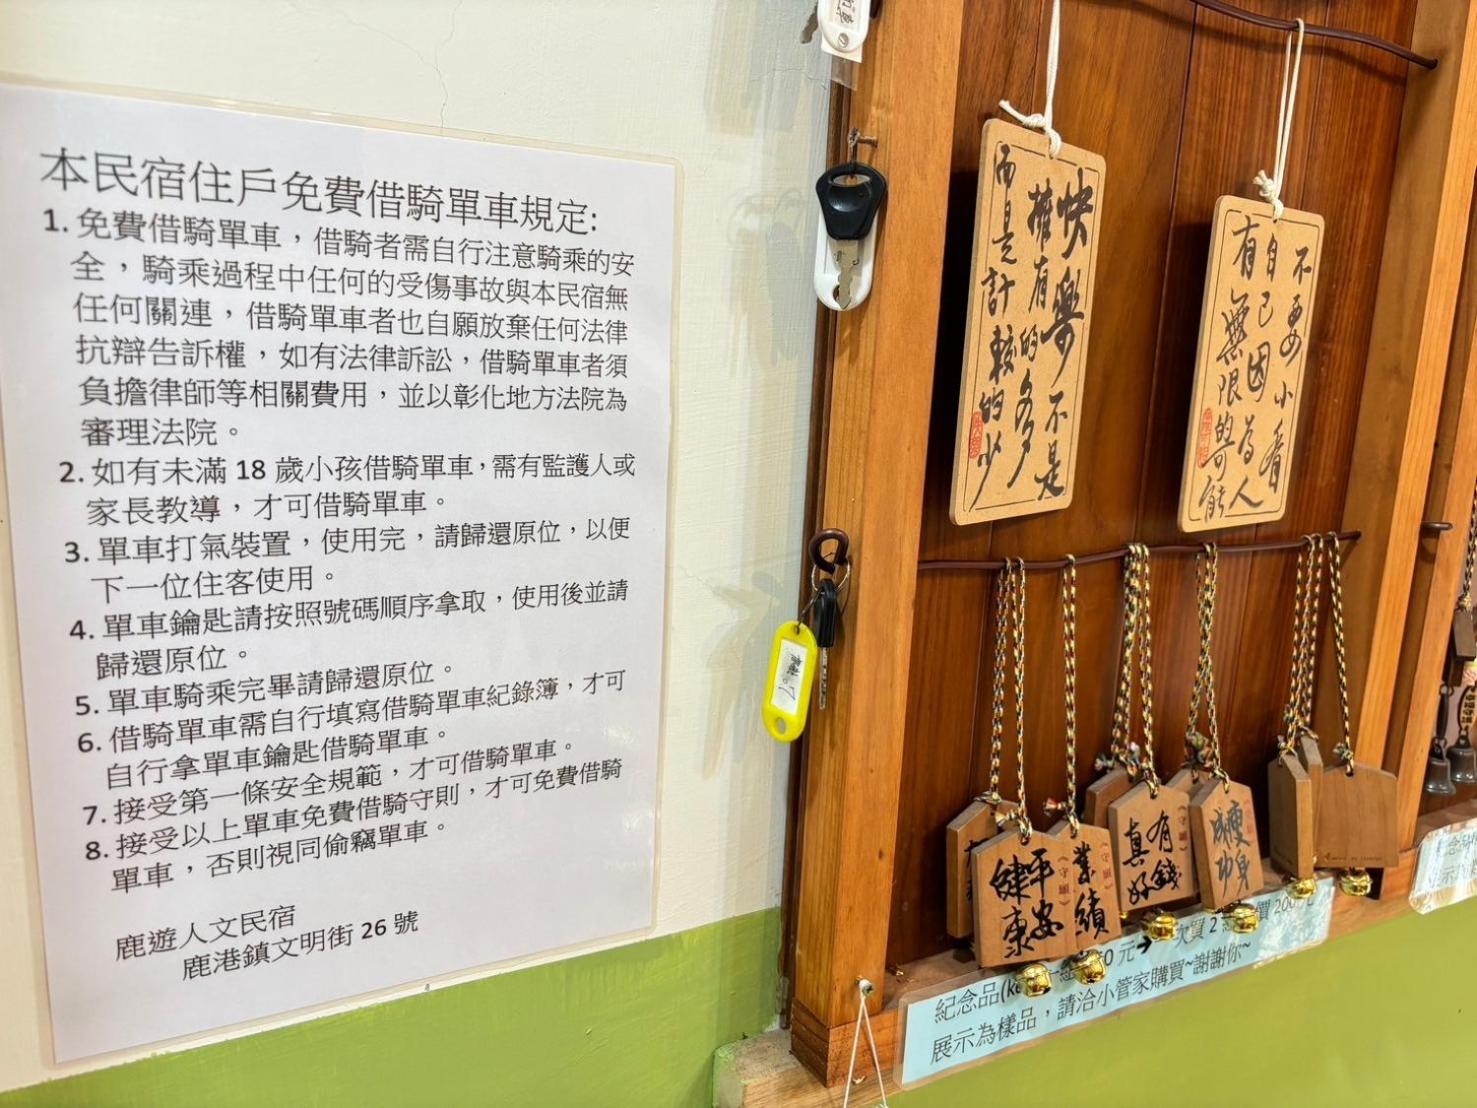 本民宿住戶免費借騎單車規定:
1. 免費借騎單車，借騎者需自行注意騎乘的安
全，騎乘過程中任何的受傷事故與本民宿無
任何關連，借騎單車者也自願放棄任何法律
抗辯告訴權，如有法律訴訟，借騎單車者須
負擔律師等相關費用，並以彰化地方法院為
審理法院。
2. 如有未滿 18 歲小孩借騎單車，需有監護人或
家長教導，才可借騎單車。
3. 單車打氣裝置，使用完，請歸還原位，以便
下一位住客使用。
4. 單車鑰匙請按照號碼順序拿取，使用後並請
歸還原位。
5. 單車騎乘完畢請歸還原位。
6. 借騎單車需自行填寫借騎單車紀錄簿，才可
自行拿單車鑰匙借騎單車。
7. 接受第一條安全規範，才可借騎單車。
8. 接受以上單車免費借騎守則，才可免費借騎
單車，否則視同偷竊單車。
鹿遊人文民宿
鹿港鎮文明街 26 號
快樂不是
擁有的多
而是計較的少
不要小看
自己因為人
有無限的可能
平安
健康
業績
守願
有錢
真好
守願
瘦身
成功
紀念品
0 元
次買 2
價 200元
展示為樣品，請洽小管家購買~謝謝你~